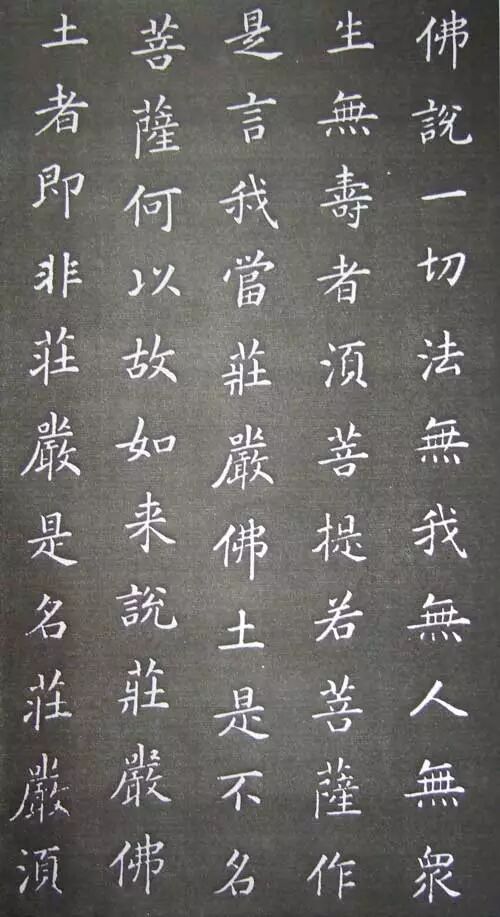 佛說一切法無我無人無眾
生無壽者湏菩提若菩薩作
是言我當莊嚴佛土是不名
菩薩何以故如来說莊嚴佛
土者即非莊嚴是名莊嚴湏